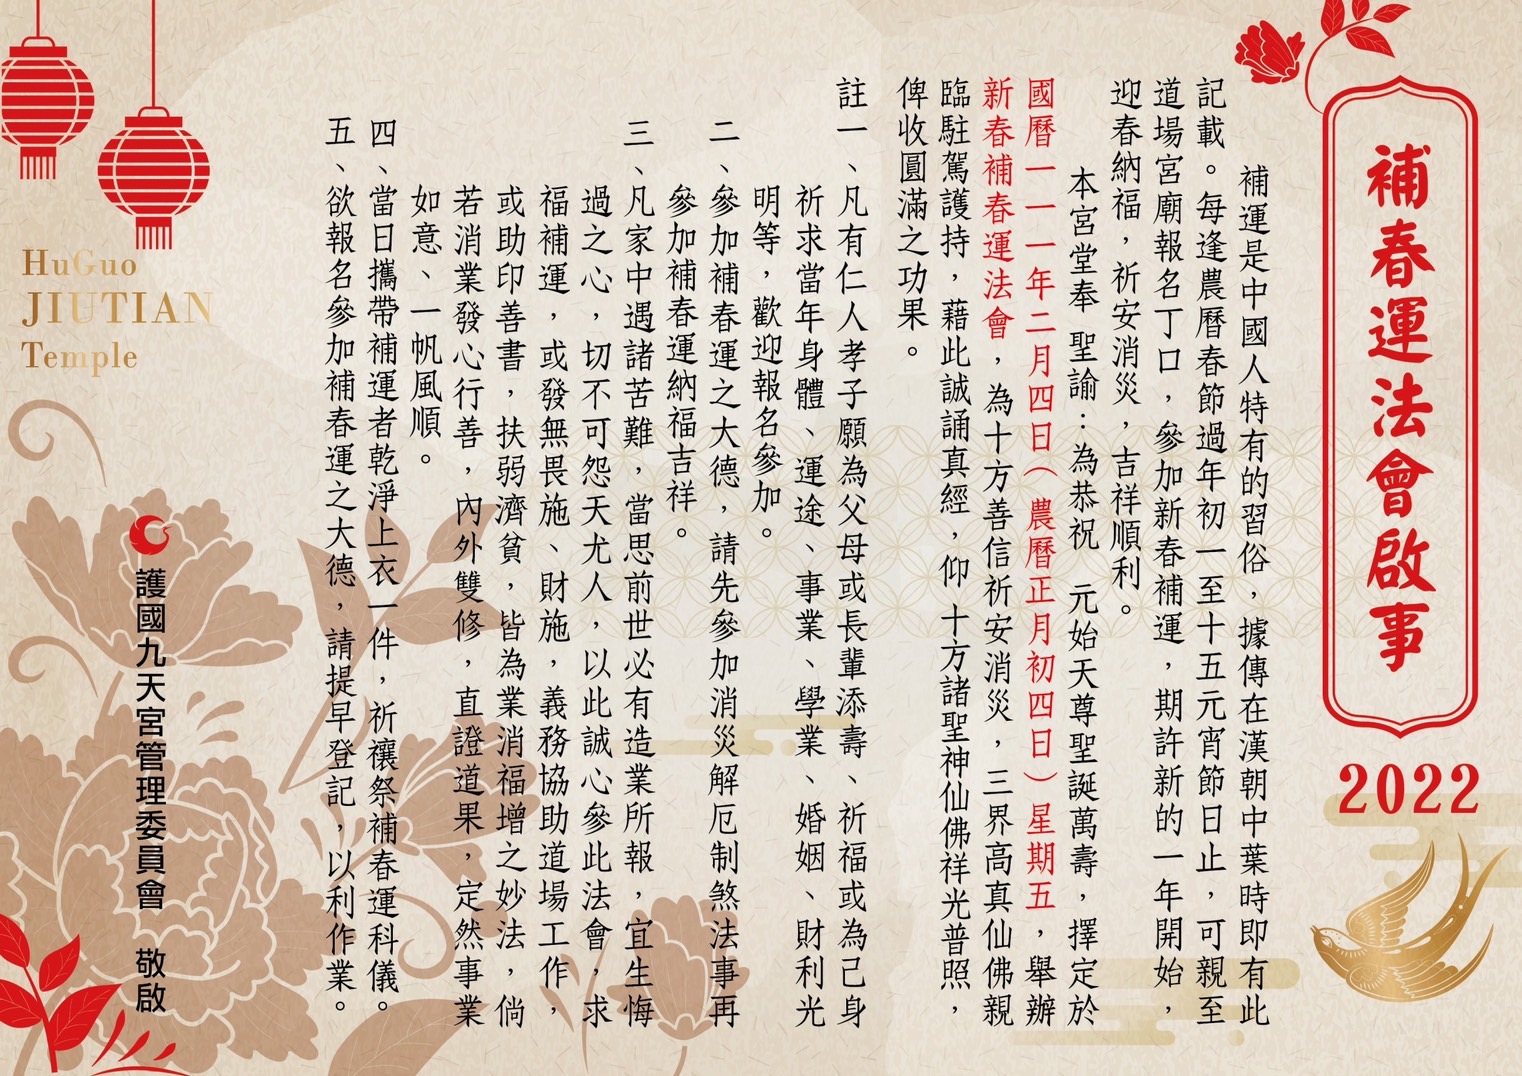 補春運法會啟事
2022
補運是中國人特有的習俗，據傳在漢朝中葉時即有此
記載。每逢農曆春節過年初一至十五元宵節日止，可親至
道場宮廟報名丁口，參加新春補運，期許新的一年開始，
迎春納福，祈安消災，吉祥順利。
本宮堂奉 聖諭：為恭祝 元始天尊聖誕萬壽，擇定於
國曆一一一年二月四日（農曆正月初四日）星期五，舉辦
新春補春運法會，為十方善信祈安消災，三界高真仙佛親
臨駐駕護持，藉此誠誦真經，仰 十方諸聖神仙佛祥光普照，
俾收圓滿之功果。
註一、凡有仁人孝子願為父母或長輩添壽、祈福或為己身
祈求當年身體、運途、事業、學業、婚姻、財利光
明等，歡迎報名參加。
二、參加補春運之大德，請先參加消災解厄制煞法事再
參加補春運納福吉祥。
三、凡家中遇諸苦難，當思前世必有造業所報，宜生悔
過之心，切不可怨天尤人，以此誠心參此法會，求
福補運，或發無畏施、財施，義務協助道場工作，
或助印善書，扶弱濟貧，皆為業消福增之妙法，倘
若消業發心行善，內外雙修，直證道果，定然事業
如意、一帆風順。
四、當日攜帶補運者乾淨上衣一件，祈禳祭補春運科儀。
五、欲報名參加補春運之大德，請提早登記，以利作業。
護國九天宮管理委員會 敬啟
HuGuo
JIUTIAN
Temple